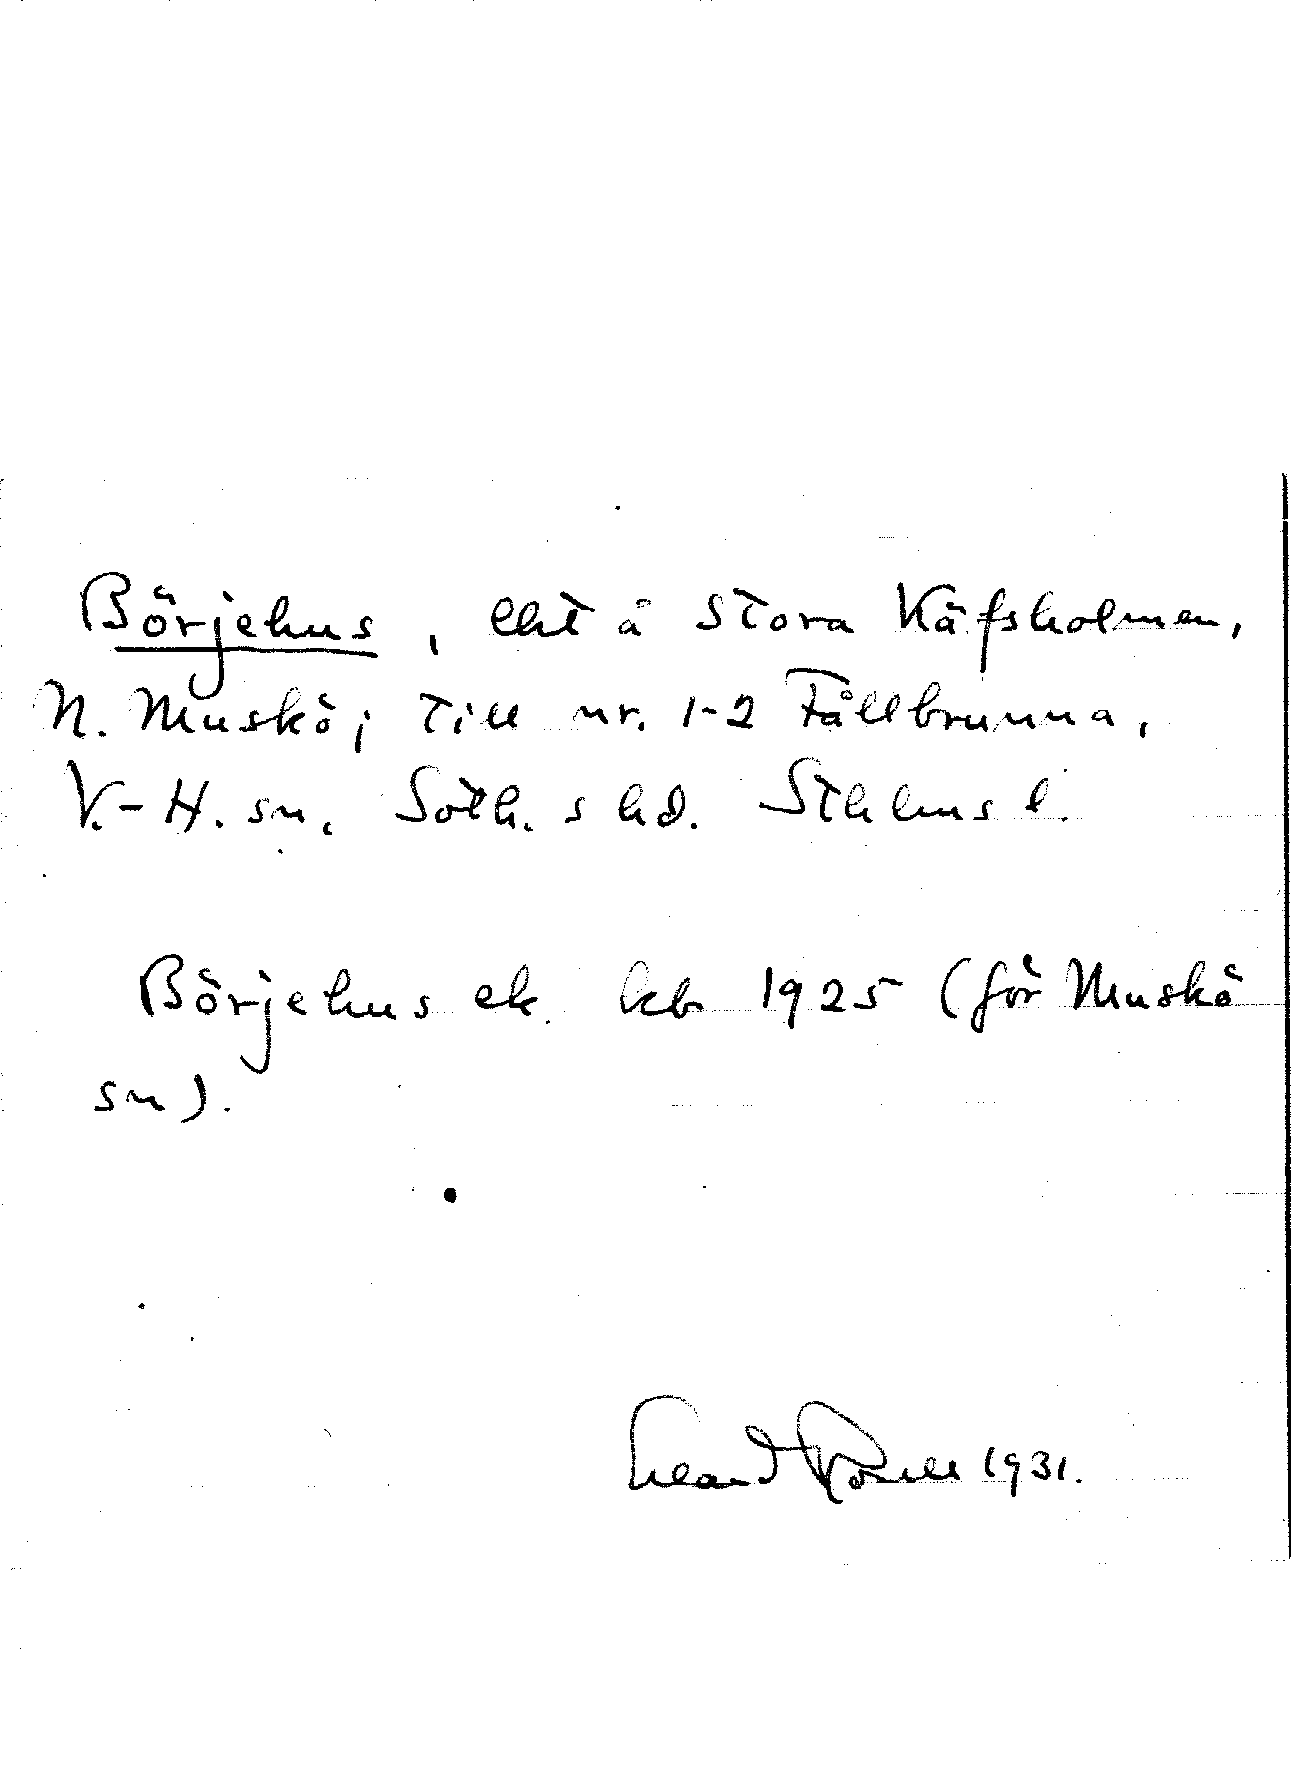 Börjehus, lht å Stora Käfsholmen,
N. Muskö; till nr. 1-2 Fållbrunna,
V.-H. sn. Soth. s hd. Sthlms l.
Börjehus ek. kb 1925 (för Muskö
sn).
Erland Rosell 1931.